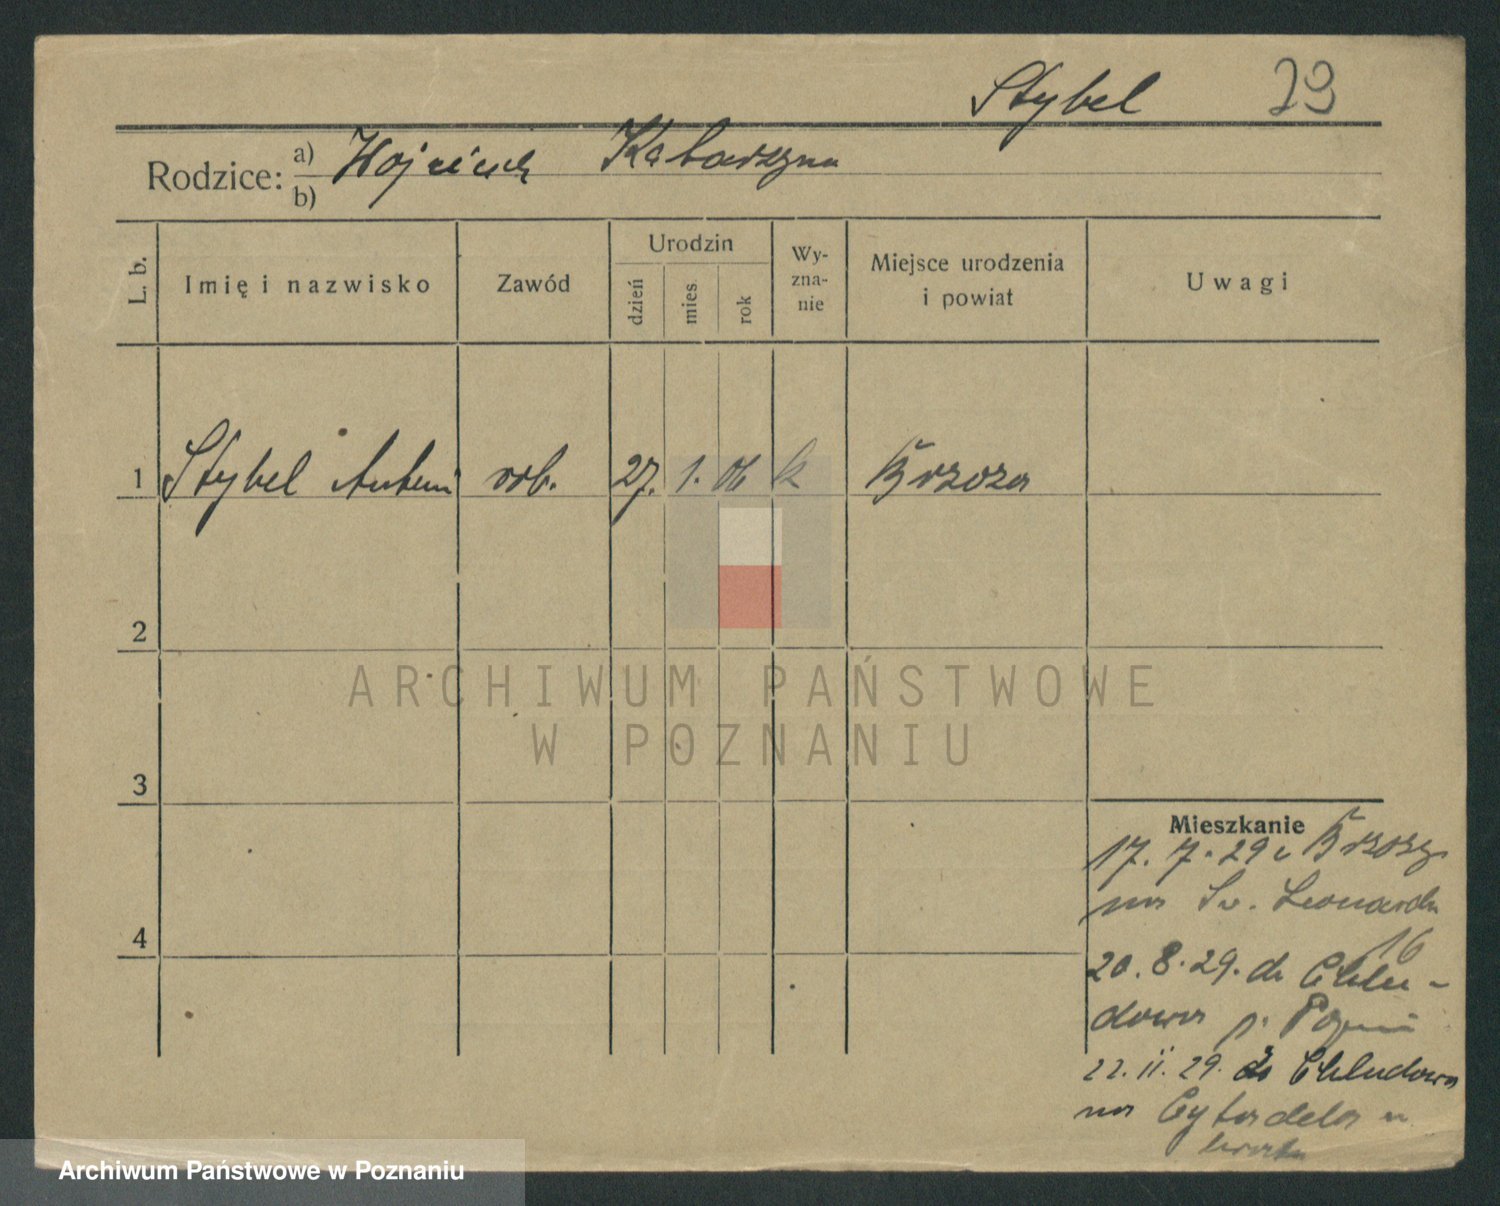 Stybel 29
Rodzice: a) Wojciech Katarzyna
b)
L. b.
Imię i nazwisko
Zawód
Urodzin
dzień
mies.
rok
Wy-
zna-
nie
Miejsce urodzenia
i powiat
Uwagi
1 Stybel Antoni rob. 27. 1. 06 k Brzoza
2
3
4
Mieszkanie
17. 7. 29 z Brzozy
na Św. Leonarda
16
20. 8. 29. do Chlu-
dowa p. Pozn
22. 11. 29. do Chludowa
na Cytadela
ARCHIWUM PAŃSTWOWE
W POZNANIU
Archiwum Państwowe w Poznaniu